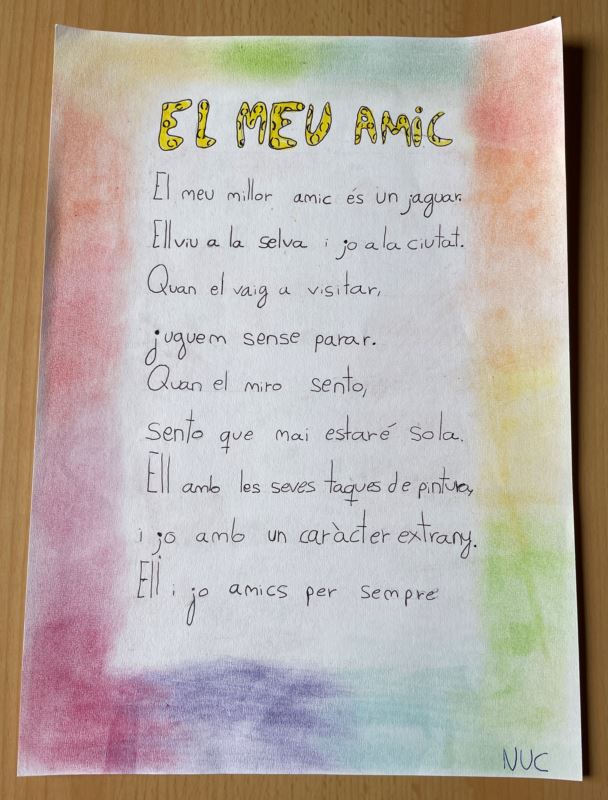 EL MEU AMIC
El meu millor amic és un jaguar.
Ell viu a la selva i jo a la ciutat.
Quan el vaig a visitar,
juguem sense parar.
Quan el miro sento,
sento que mai estaré sola.
Ell amb les seves taques de pintura,
i jo amb un caràcter extrany.
Ell i jo amics per sempre
NUC